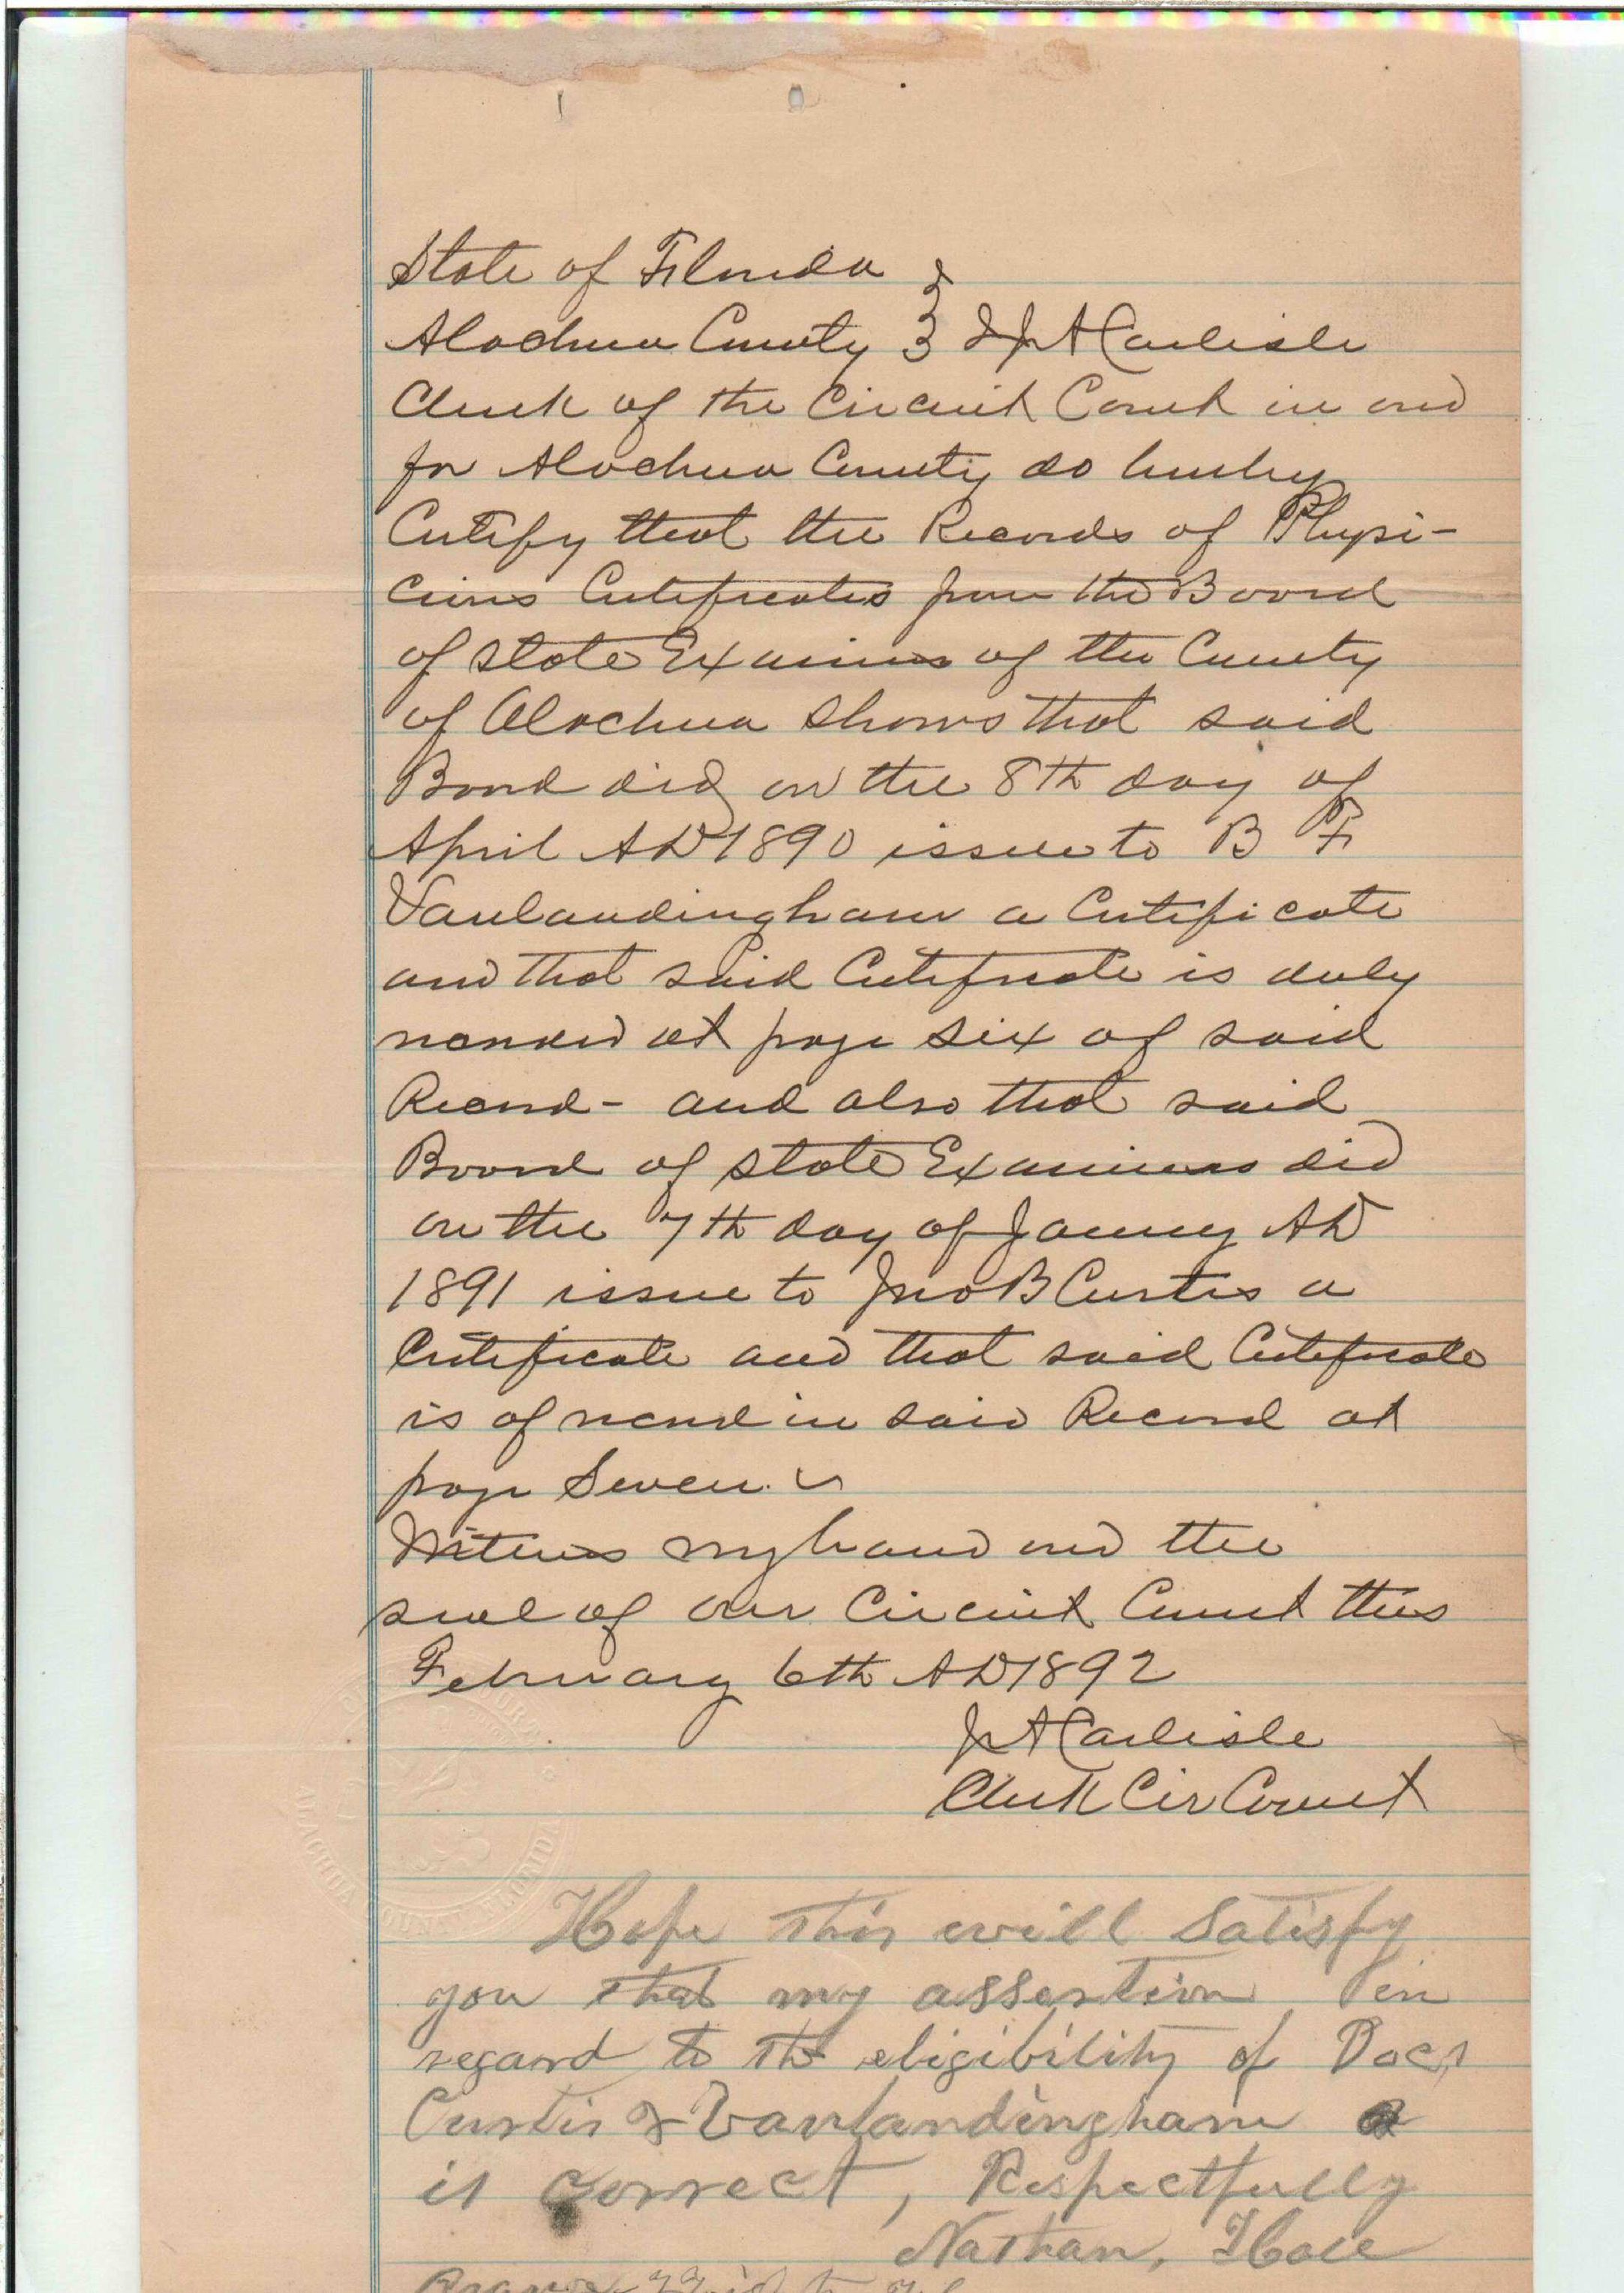 State of Florida }
Alachua County } I J A Carlisle
Clerk of the Circuit Court in and
for Alachua County do hereby
Certify that the Records of Physi-
cians Certificates from the Board
of State Examiners of the County
of Alachua shows that said
Board did on the 8th day of
April AD 1890 issue to B F
Vanlandingham a Certificate
and that said Certificate is duly
recorded at page six of said
Record - and also that said
Board of State Examiners did
on the 7th day of January AD
1891 issue to Jno B Curtis a
Certificate and that said Certificate
is of record in said Record at
page Seven.
Witness my hand and the
seal of our Circuit Court this
February 6th AD 1892
J A Carlisle
Clerk Cir Court
ALACHUA COUNTY FLORIDA
Hope this will Satisfy
you that my assertion in
regard to the eligibility of Docs
Curtis & Vanlandingham
is correct, Respectfully
Nathan,